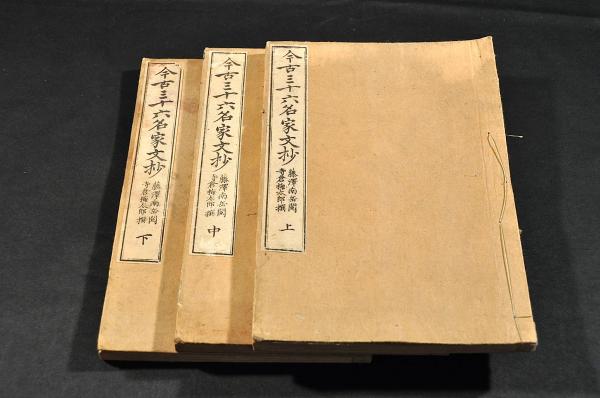 今古三十六名家文抄
藤澤南岳閲
寺倉梅太郎撰
上
今古三十六名家文抄
藤澤南岳閲
寺倉梅太郎撰
中
今古三十六名家文抄
藤澤南岳閲
寺倉梅太郎撰
下